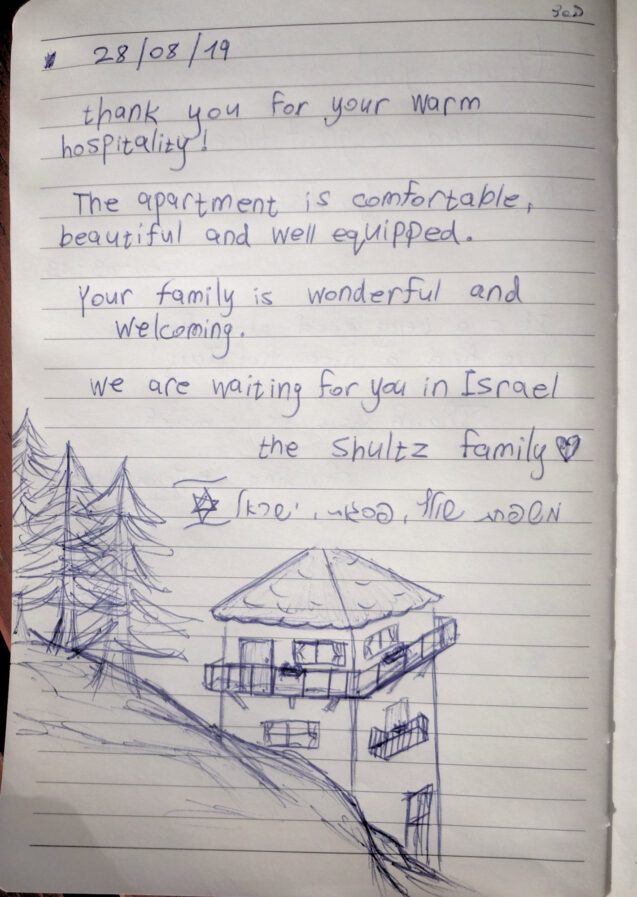 בס"ד
28/08/19
thank you for your warm
hospitality!
The apartment is comfortable,
beautiful and well equipped.
Your family is wonderful and
welcoming.
we are waiting for you in Israel
the Shultz family
משפחת שולץ, פסגות, ישראל